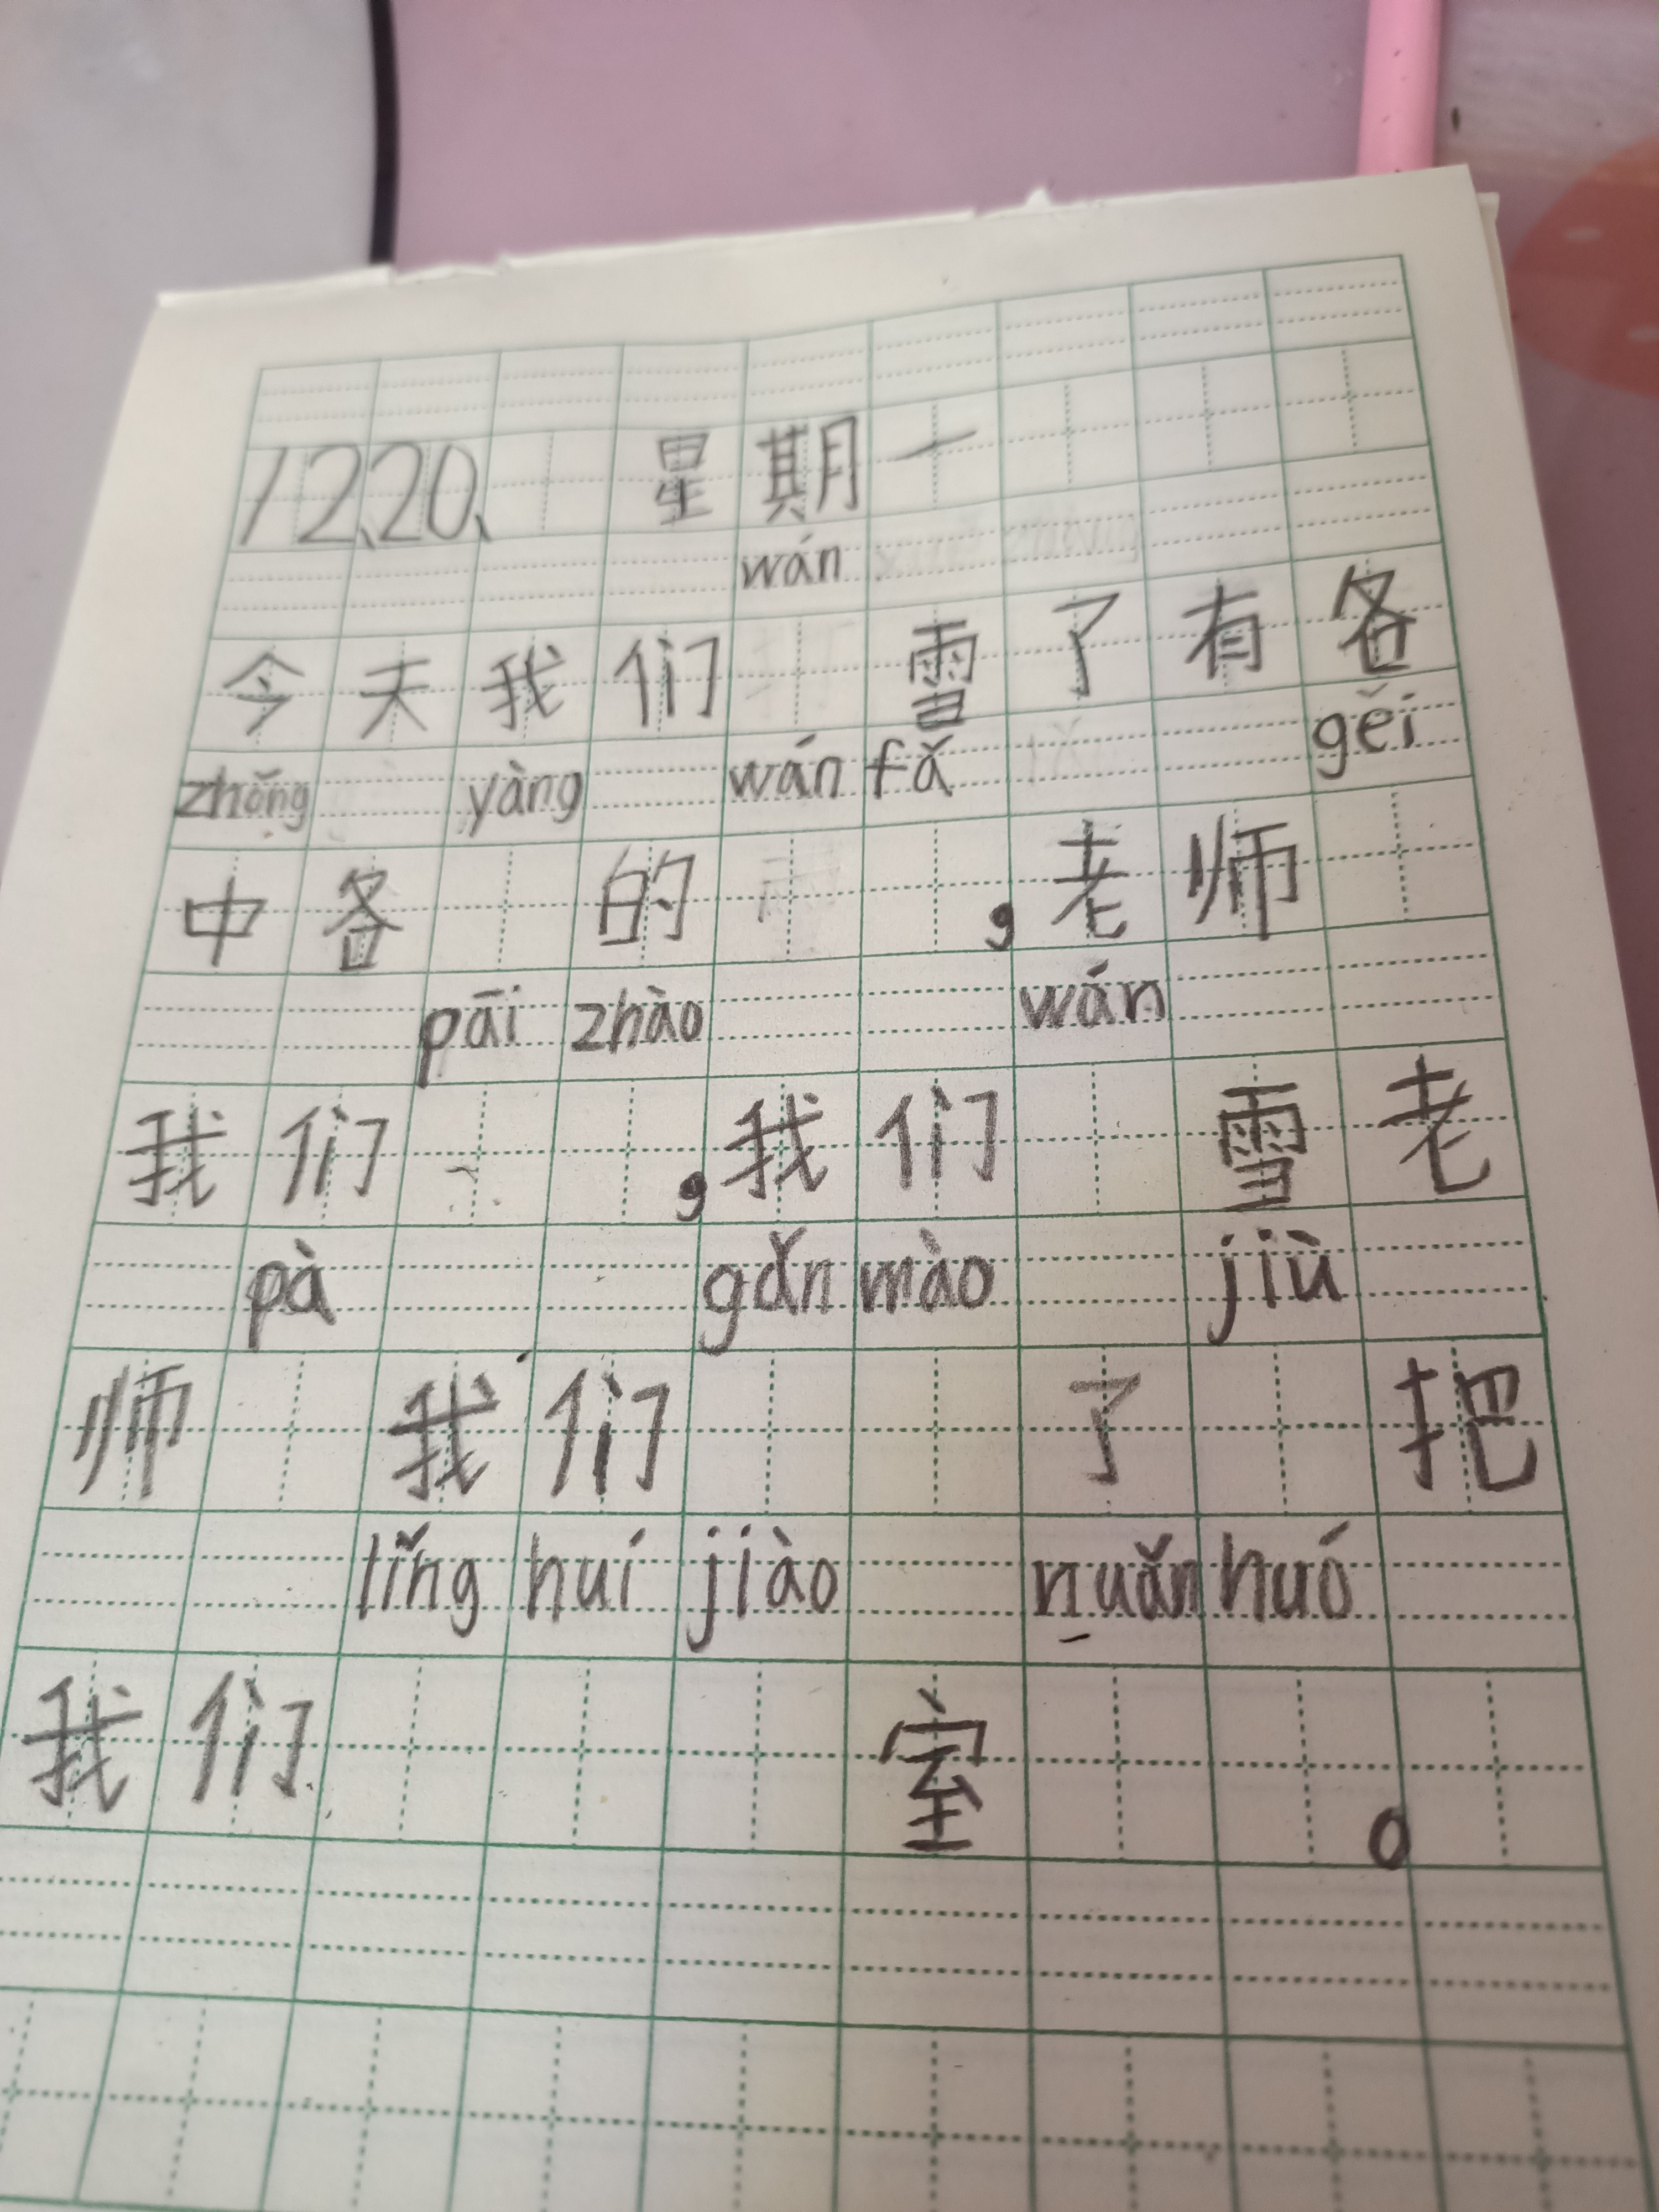 12、20、 星期一
wán
今天我们 雪了有各
zhǒng yàng wán fǎ gěi
中各 的 ，老师
pāi zhào wán
我们 ，我们 雪老
pà gǎn mào jiù
师 我们 了 把
lǐng huí jiào nuǎn huó
我们 室 。